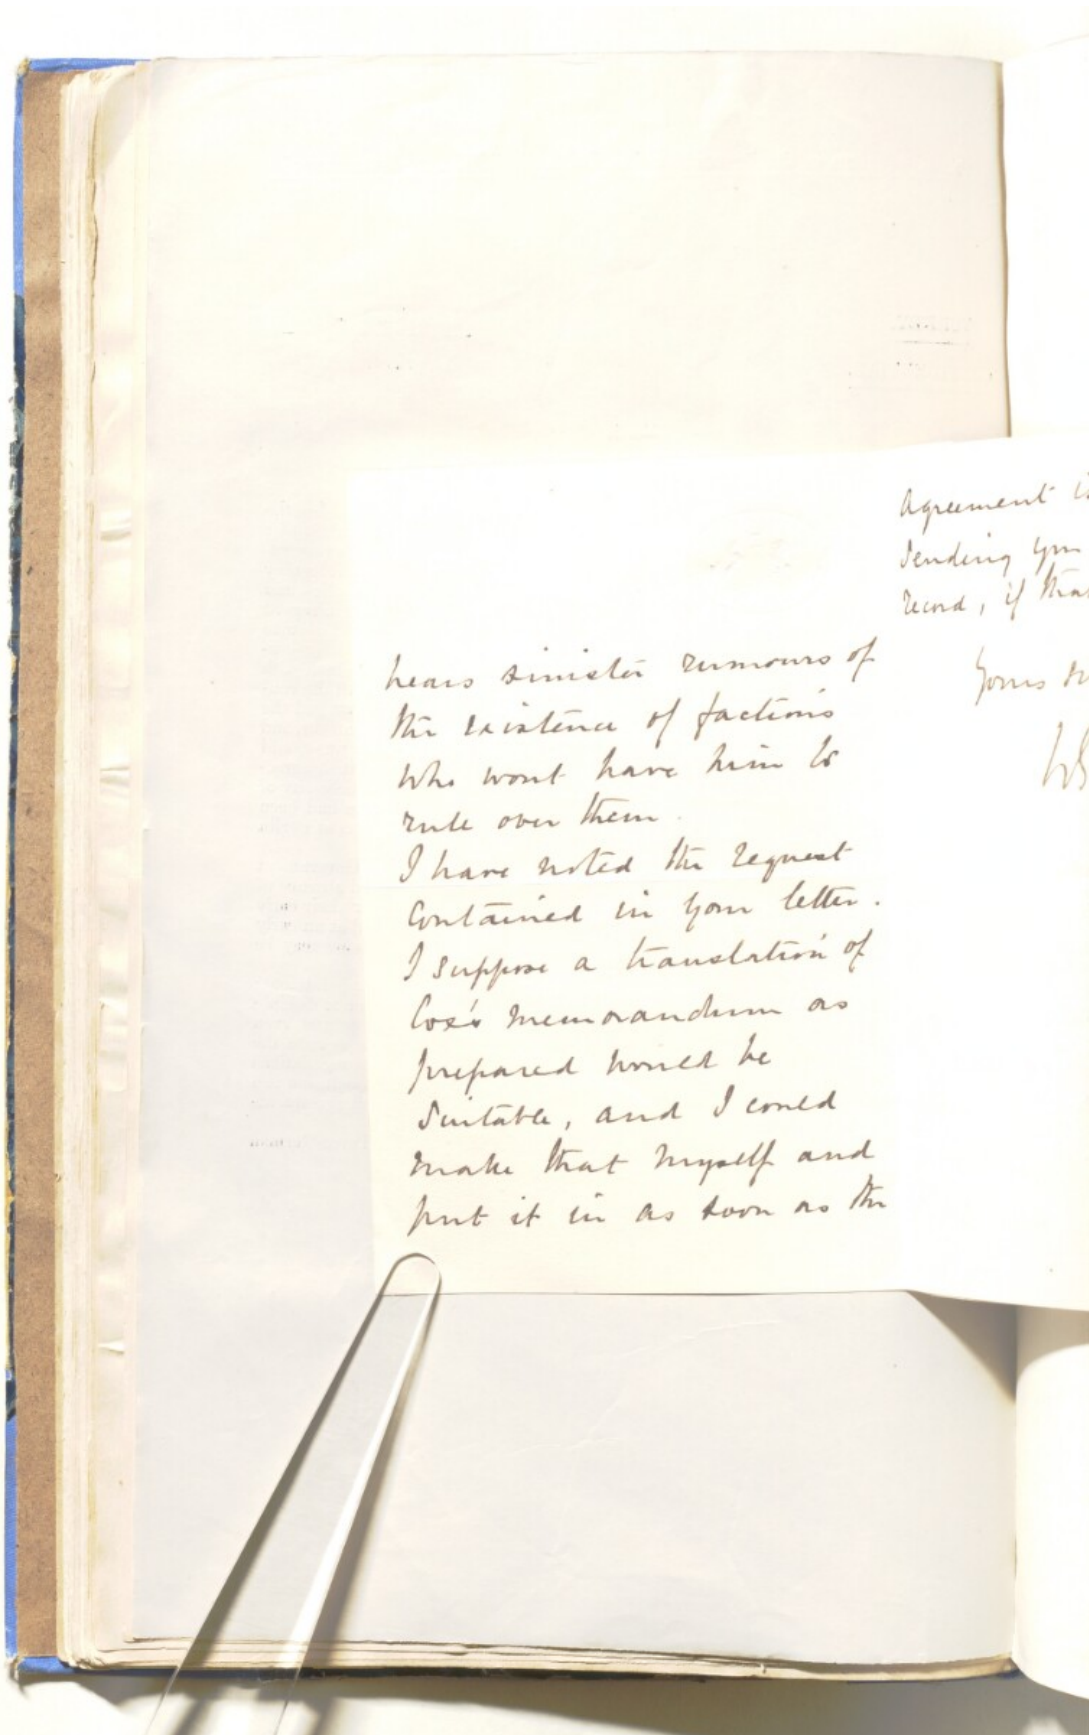 hears sinister rumours of
the existence of factions
who wont have him to
rule over them.
I have noted the request
contained in your letter.
I suppose a translation of
Cox's memorandum as
prepared would be
suitable, and I could
make that myself and
put it in as soon as the
Agreement
sending you
record, if that
Yours